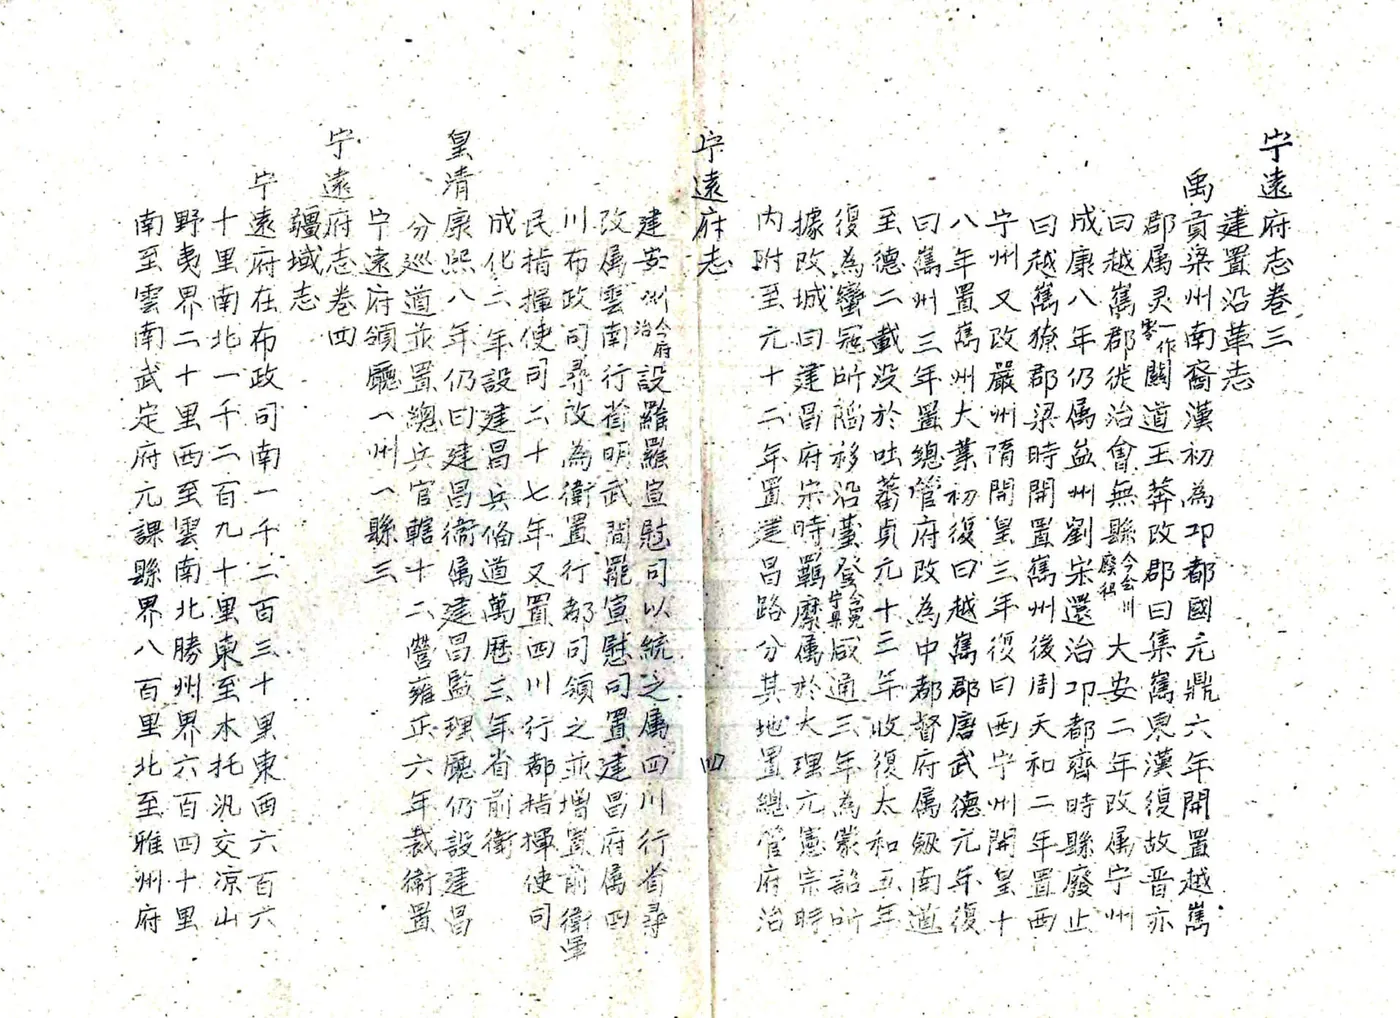 宁遠府志卷三
建置沿革志
禹貢梁州南裔漢初為邛都國元鼎六年開置越嶲
郡属灵一作零關道王莽改郡曰集嶲東漢復故晋亦
曰越嶲郡徙治會無縣今会川廢衛大安二年改属宁州
成康八年仍属益州劉宋還治邛都齊時縣廢止
曰越嶲獠郡梁時開置嶲州後周天和二年置西
宁州又改嚴州隋開皇三年復曰西宁州開皇十
八年置嶲州大業初復曰越嶲郡唐武德元年復
曰嶲州三年置總管府改為中都督府属劔南道
至德二載没於吐蕃貞元十三年收復太和五年
復為蠻冦所陷移沿臺登今冕宁縣咸通三年為蒙詔所
據改城曰建昌府宋時羈縻属於大理元憲宗時
内附至元十二年置建昌路分其地置總管府治
宁遠府志
建安州今府治設羅羅宣慰司以統之属四川行省尋
改属雲南行省明武間罷宣慰司置建昌府属四
川布政司尋改為衛置行都司領之並增置前衛軍
民指揮使司二十七年又置四川行都指揮使司
成化二年設建昌兵備道萬歷三年省前衛
皇清康熙八年仍曰建昌衛属建昌監理廳仍設建昌
分巡道並置總兵官轄十二營雍正六年裁衛置
宁遠府領廳一州一縣三
宁遠府志卷四
疆域志
宁遠府在布政司南一千二百三十里東西六百六
十里南北一千二百九十里東至木托汎交凉山
野夷界二十里西至雲南北勝州界六百四十里
南至雲南武定府元謀縣界八百里北至雅州府